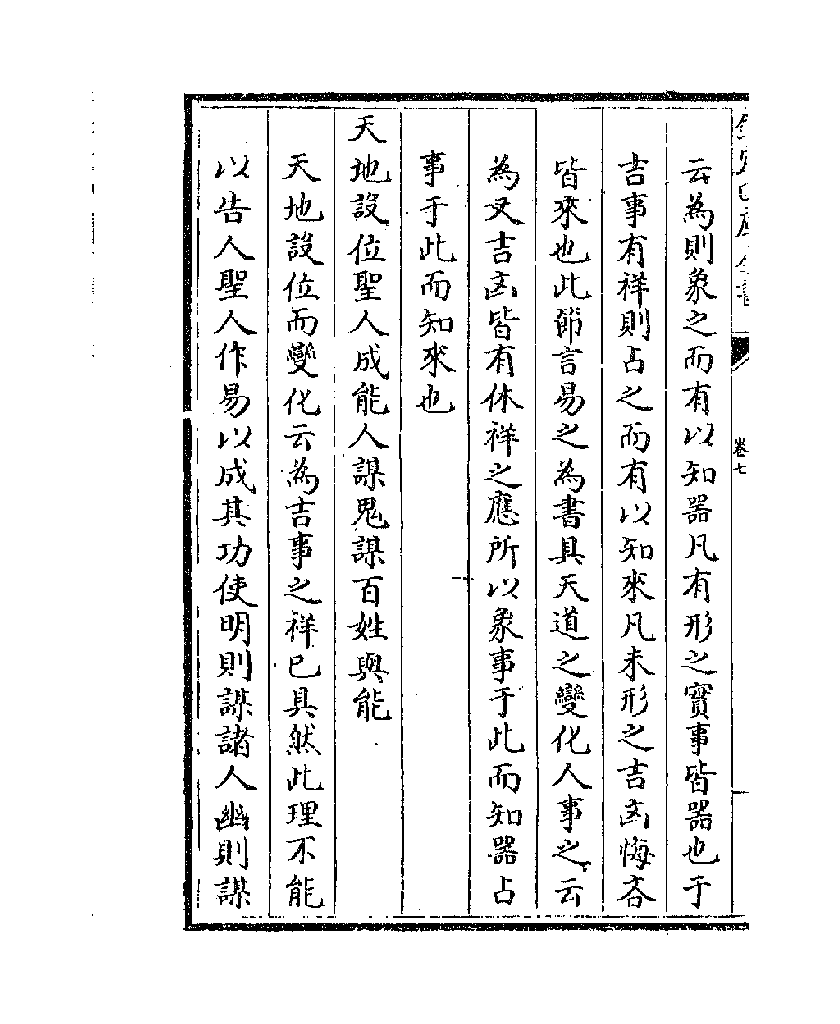 云為則象之而有以知器凡有形之實事皆器也于
吉事有祥則占之而有以知來凡未形之吉凶悔吝
皆來也此節言易之為書具天道之變化人事之云
為又吉凶皆有休祥之應所以象事于此而知器占
事于此而知來也
天地設位聖人成能人謀鬼謀百姓與能
天地設位而變化云為吉事之祥已具然此理不能
以告人聖人作易以成其功使明則謀諸人幽則謀
卷七